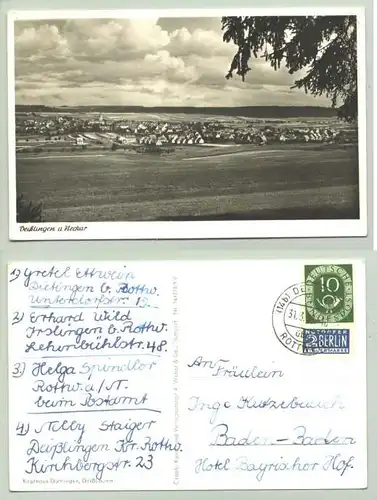 Deißlingen a. Neckar
1) Gretel Ettwein
Dietingen b. Rottw.
Unterdorfstr. 19
2) Erhard Wild
Irslingen b. Rottw.
Lehenbühlstr. 48.
3) Helga Spindler
Rottw. a/N.
beim Postamt
4) Nelly Staiger
Deißlingen Kr. Rottw.
Kirchbergstr. 23
(14b) DE
31.3.
ROTT
DEUTSCHE
10
NOTOPFER
2 BERLIN
STEUERMARKE
An
Fräulein
Inge
Baden-Baden
Hotel Bayrischer Hof.